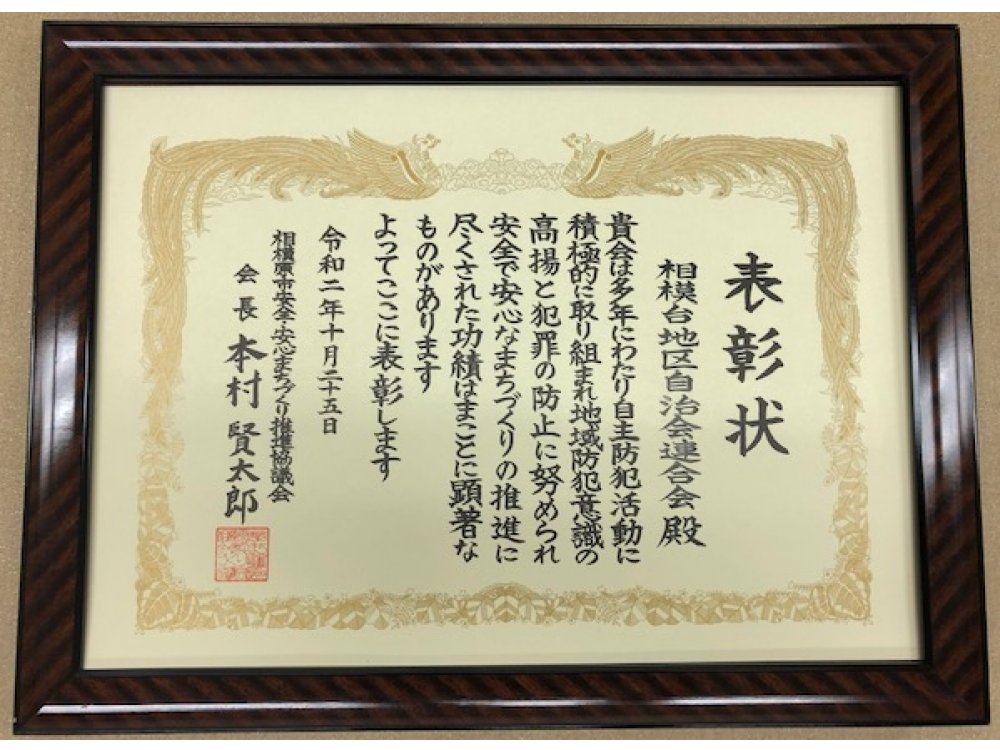 表彰状
相模台地区自治会連合会 殿
貴会は多年にわたり自主防犯活動に
積極的に取り組まれ地域防犯意識の
高揚と犯罪の防止に努められ
安全で安心なまちづくりの推進に
尽くされた功績はまことに顕著な
ものがあります
よってここに表彰します
令和二年十月二十五日
相模原市安全・安心まちづくり推進協議会
会長 本村 賢太郎